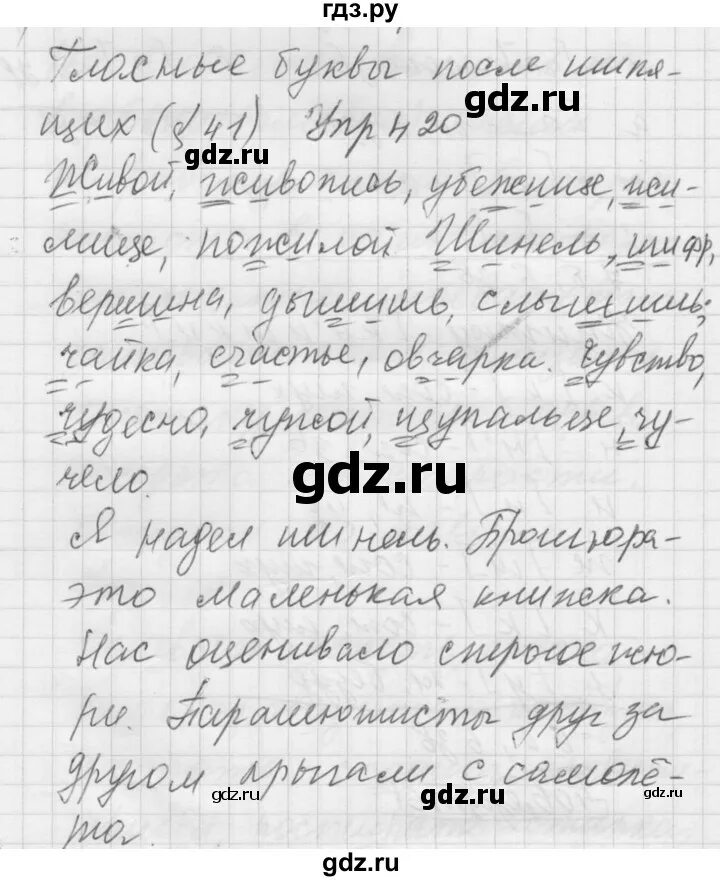 гдз.ру
Гласные буквы после шипя-
щих (§ 41) Упр 420
gdz.ru
gdz.ru
Живой, живопись, убежище, жи-
лище, пожилой Шинель, шифр,
вершина, дышишь, слышишь;
чайка, счастье, овчарка. Чувство,
чудесно, чужой, щупальце, чу-
gdz.ru
чело.
Я надел шинель. Брошюра-
это маленькая книжка.
Нас оценивало строгое жю-
ри. Парашютисты друг за
другом прыгали с самолё-
gdz.ru
gdz.ru
та.
gdz.ru